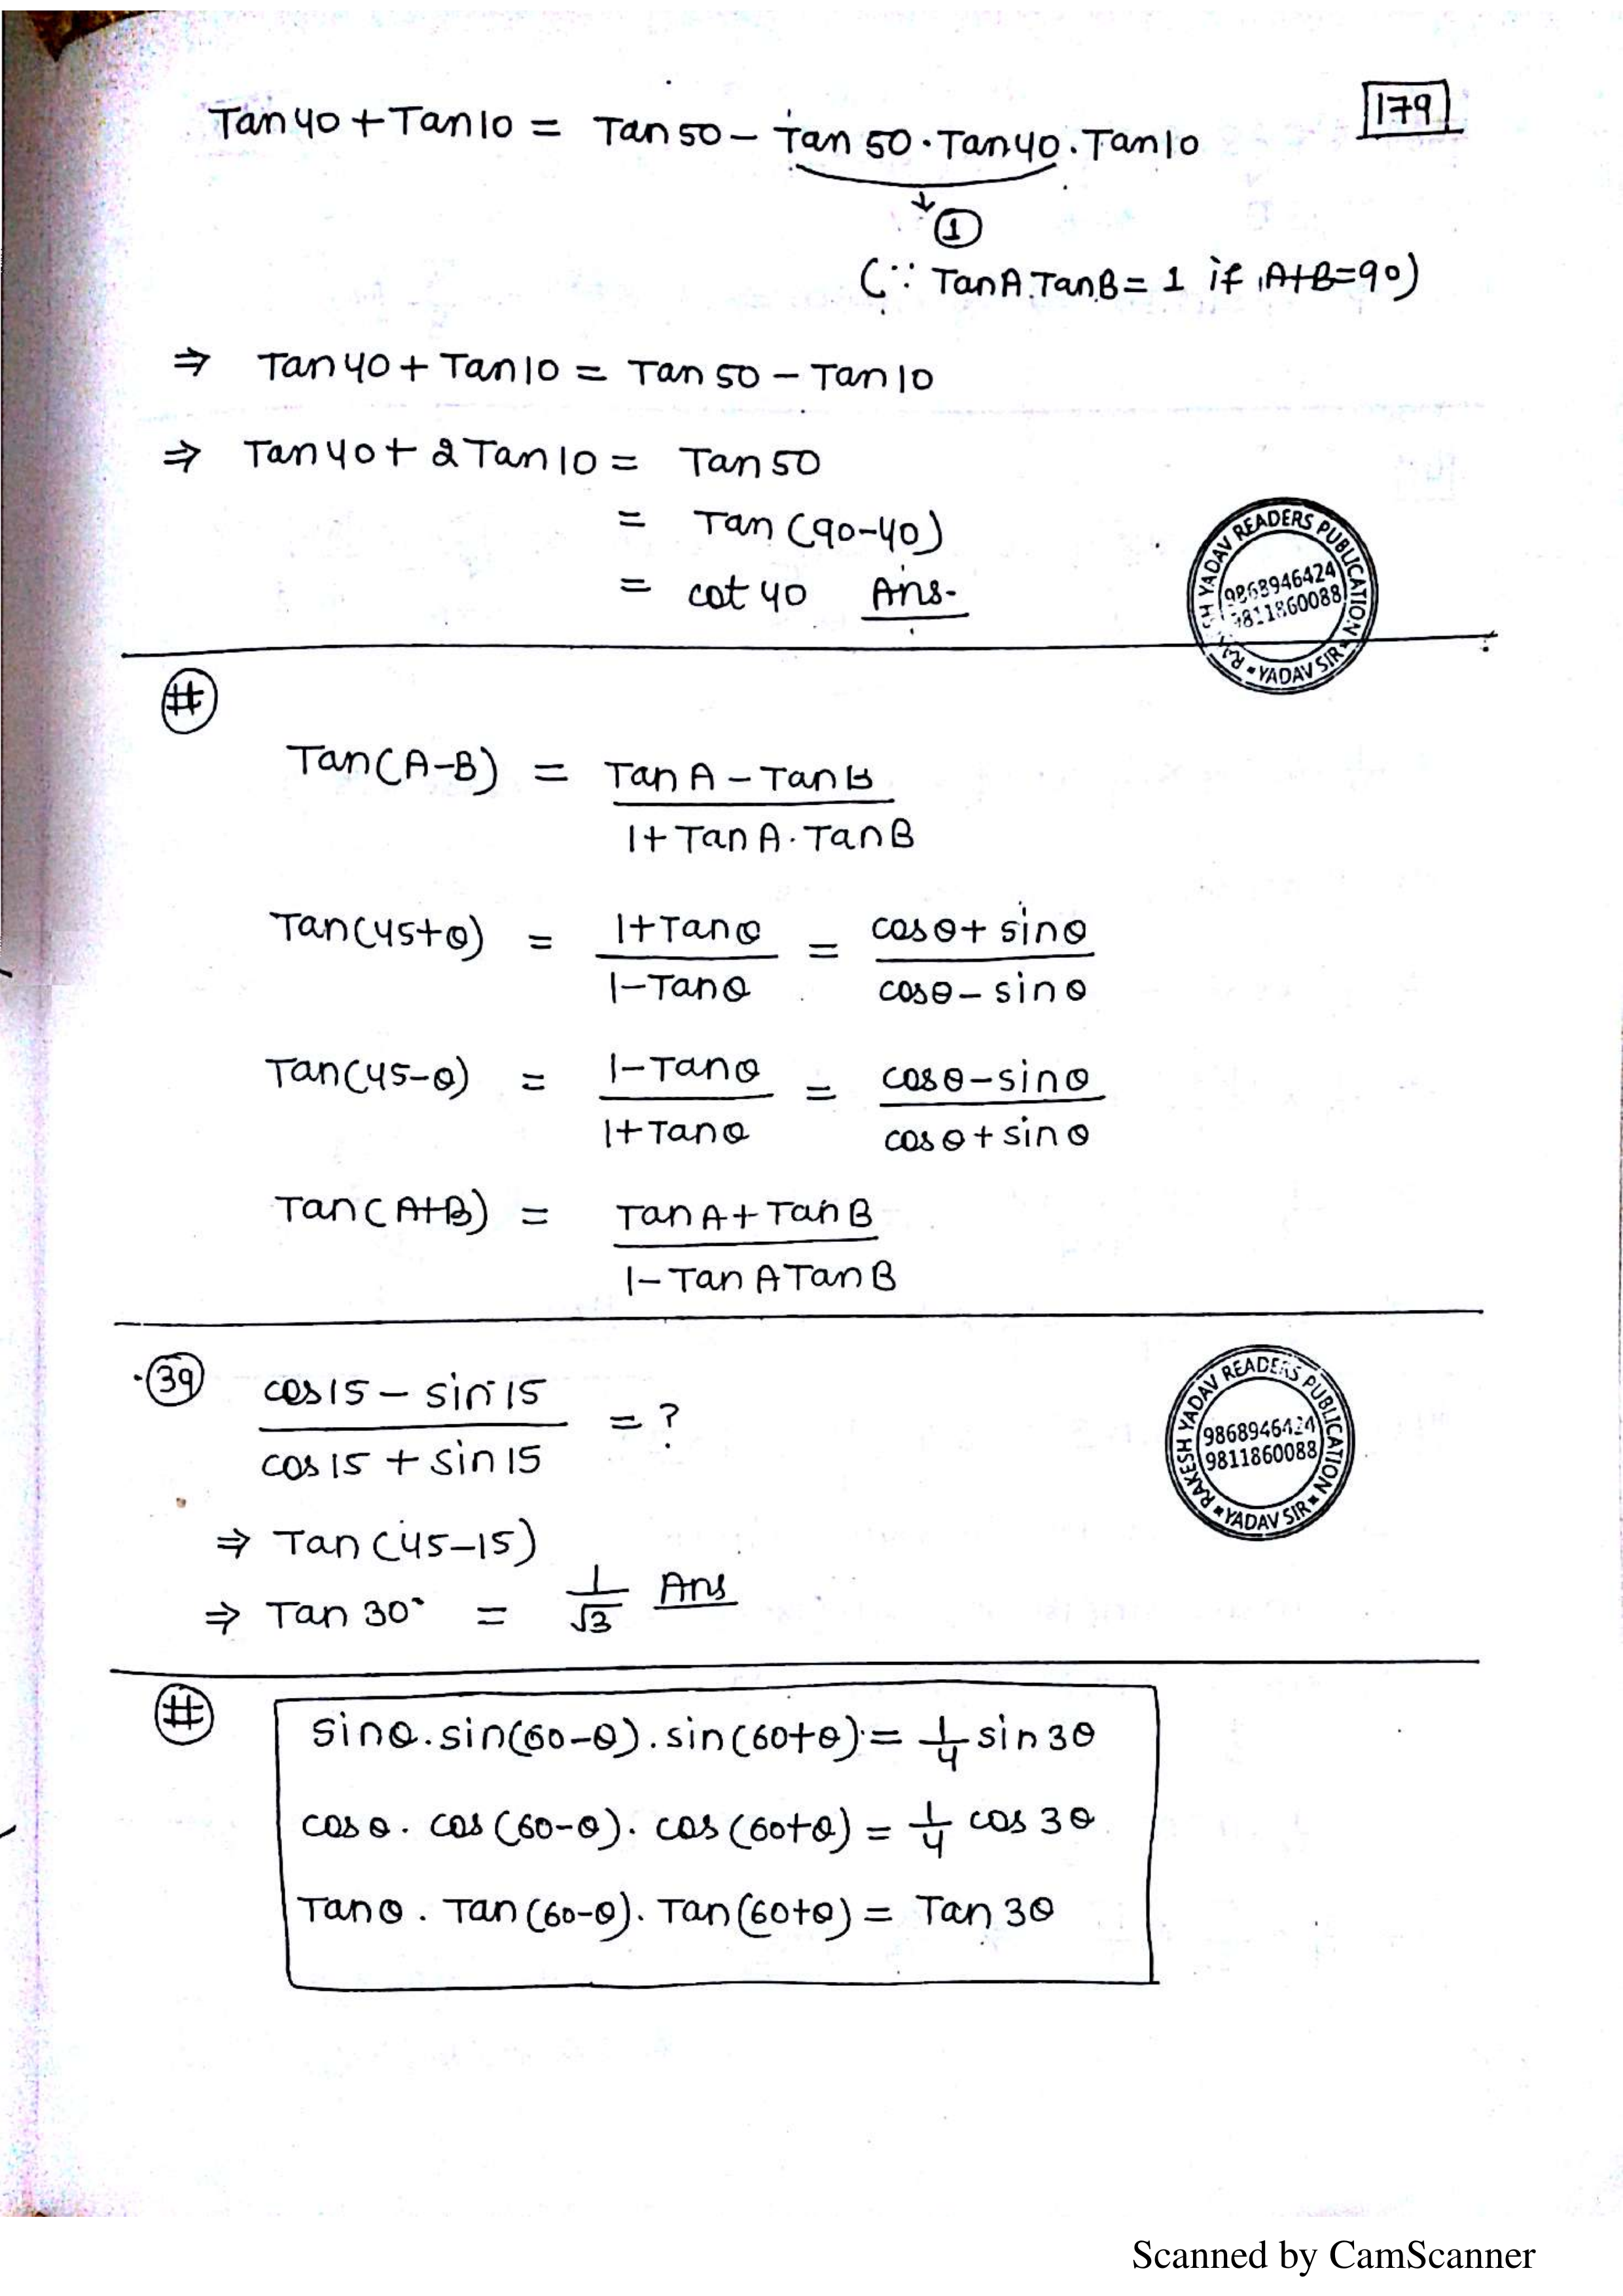 179
Tan 40 + Tan 10 = Tan 50 - Tan 50 . Tan 40 . Tan 10
↓
①
(∵ Tan A . Tan B = 1 if A+B=90)
⇒ Tan 40 + Tan 10 = Tan 50 - Tan 10
⇒ Tan 40 + 2 Tan 10 = Tan 50
= Tan (90-40)
= cot 40 Ans.
RAKESH YADAV READERS PUBLICATION
9868946424
9811860088
YADAV SIR
#
Tan(A-B) = (Tan A - Tan B) / (1 + Tan A . Tan B)
Tan(45+θ) = (1+Tan θ) / (1-Tan θ) = (cos θ + sin θ) / (cos θ - sin θ)
Tan(45-θ) = (1-Tan θ) / (1+Tan θ) = (cos θ - sin θ) / (cos θ + sin θ)
Tan(A+B) = (Tan A + Tan B) / (1 - Tan A Tan B)
39 (cos 15 - sin 15) / (cos 15 + sin 15) = ?
⇒ Tan (45-15)
⇒ Tan 30° = 1/√3 Ans
RAKESH YADAV READERS PUBLICATION
9868946424
9811860088
YADAV SIR
#
sin θ . sin(60-θ) . sin(60+θ) = 1/4 sin 3θ
cos θ . cos (60-θ) . cos (60+θ) = 1/4 cos 3θ
Tan θ . Tan (60-θ) . Tan (60+θ) = Tan 3θ
Scanned by CamScanner